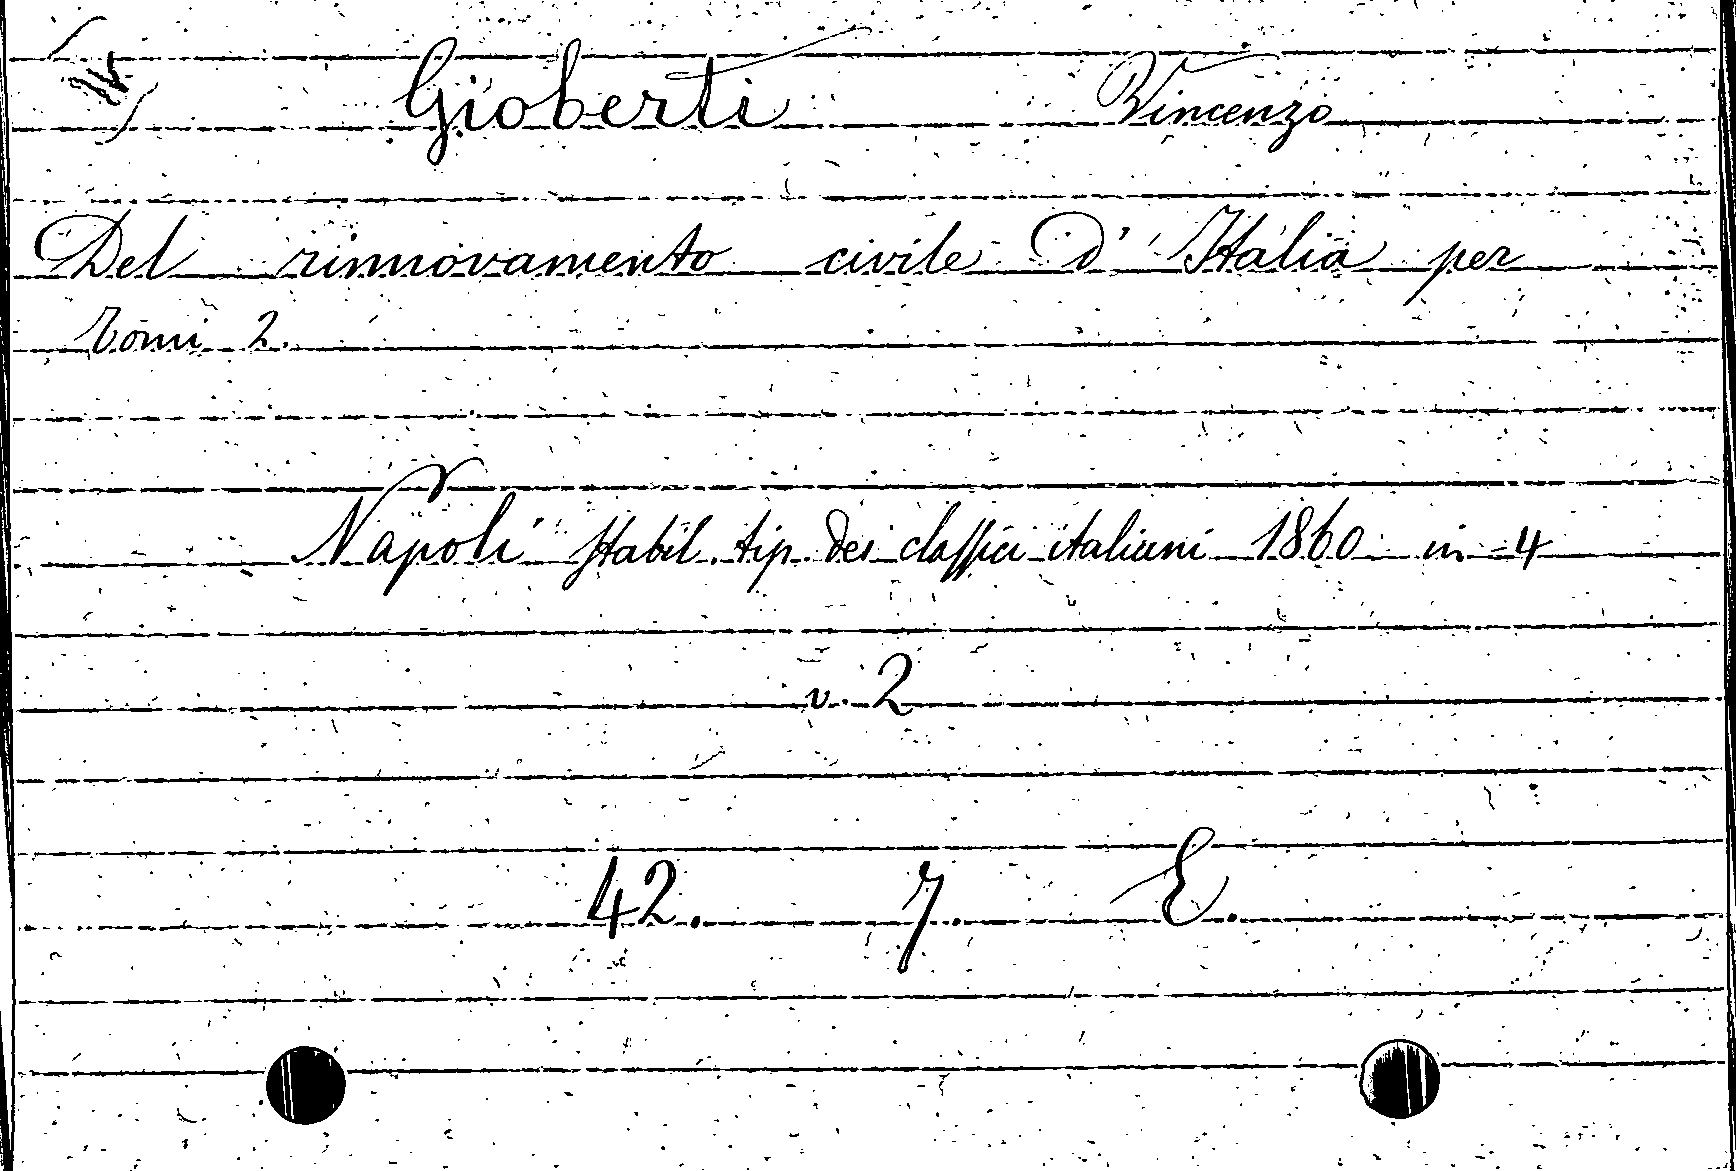 Gioberti Vincenzo
Del rinnovamento civile d'Italia per
Tomi 2.
Napoli Stabil. tip. dei classici italiani 1860 in-4
v. 2
42. 7. E.